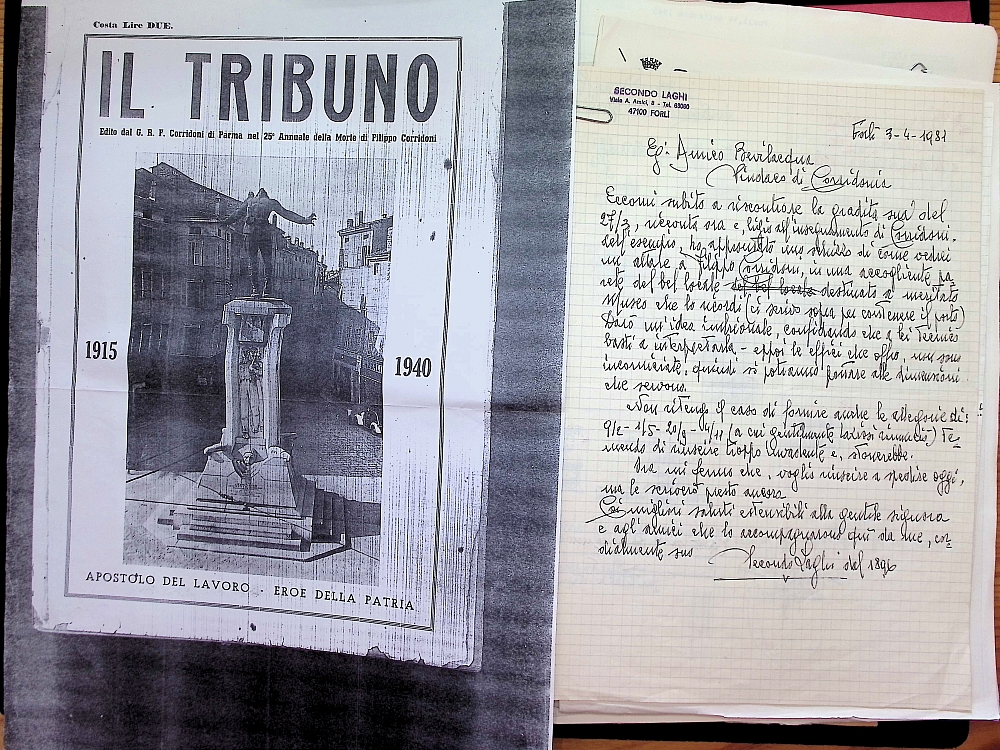 Costa Lire DUE.
IL TRIBUNO
Edito dal G. R. F. Corridoni di Parma nel 25° Annuale della Morte di Filippo Corridoni
1915
1940
APOSTOLO DEL LAVORO - EROE DELLA PATRIA
SECONDO LAGHI
Viale A. Amici, 8 - Tel.
47100 FORLÌ
Forlì 3-4-1981
Eg: Amico Bevilacqua
Sindaco di Corridonia
Eccomi subito a riscontrare la gradita sua del
27/3, ricevuta ora e, ligio all'insegnamento di Corridoni.
dell'esempio, ho approntato uno schizzo di come vedrei
un altare a Filippo Corridoni, in una accogliente pa
rete del bel locale del bel locale destinato a meritato
Museo che lo ricordi (ci scrivo sopra per contenere il posto)
Darò un'idea embrionale, confidando che a lei Tecnico
basti a interpretarla - eppoi le effici che offro, non sono
incorniciate, quindi si potranno portare alle dimensioni
che servono.
Non ritengo il caso di fornire anche le allegorie di:
9/2 - 1/5 - 20/9 - 4/11 (a cui gentilmente rinunci) te-
mendo di riuscire troppo invadente e, stonerebbe.
Ora mi fermo che, voglio riuscire a spedire oggi,
ma le scriverò presto ancora
Coi migliori saluti estensibili alla gentile signora
e agli amici che lo accompagnarono qui da me, cor
dialmente suo
Secondo Laghi del 189